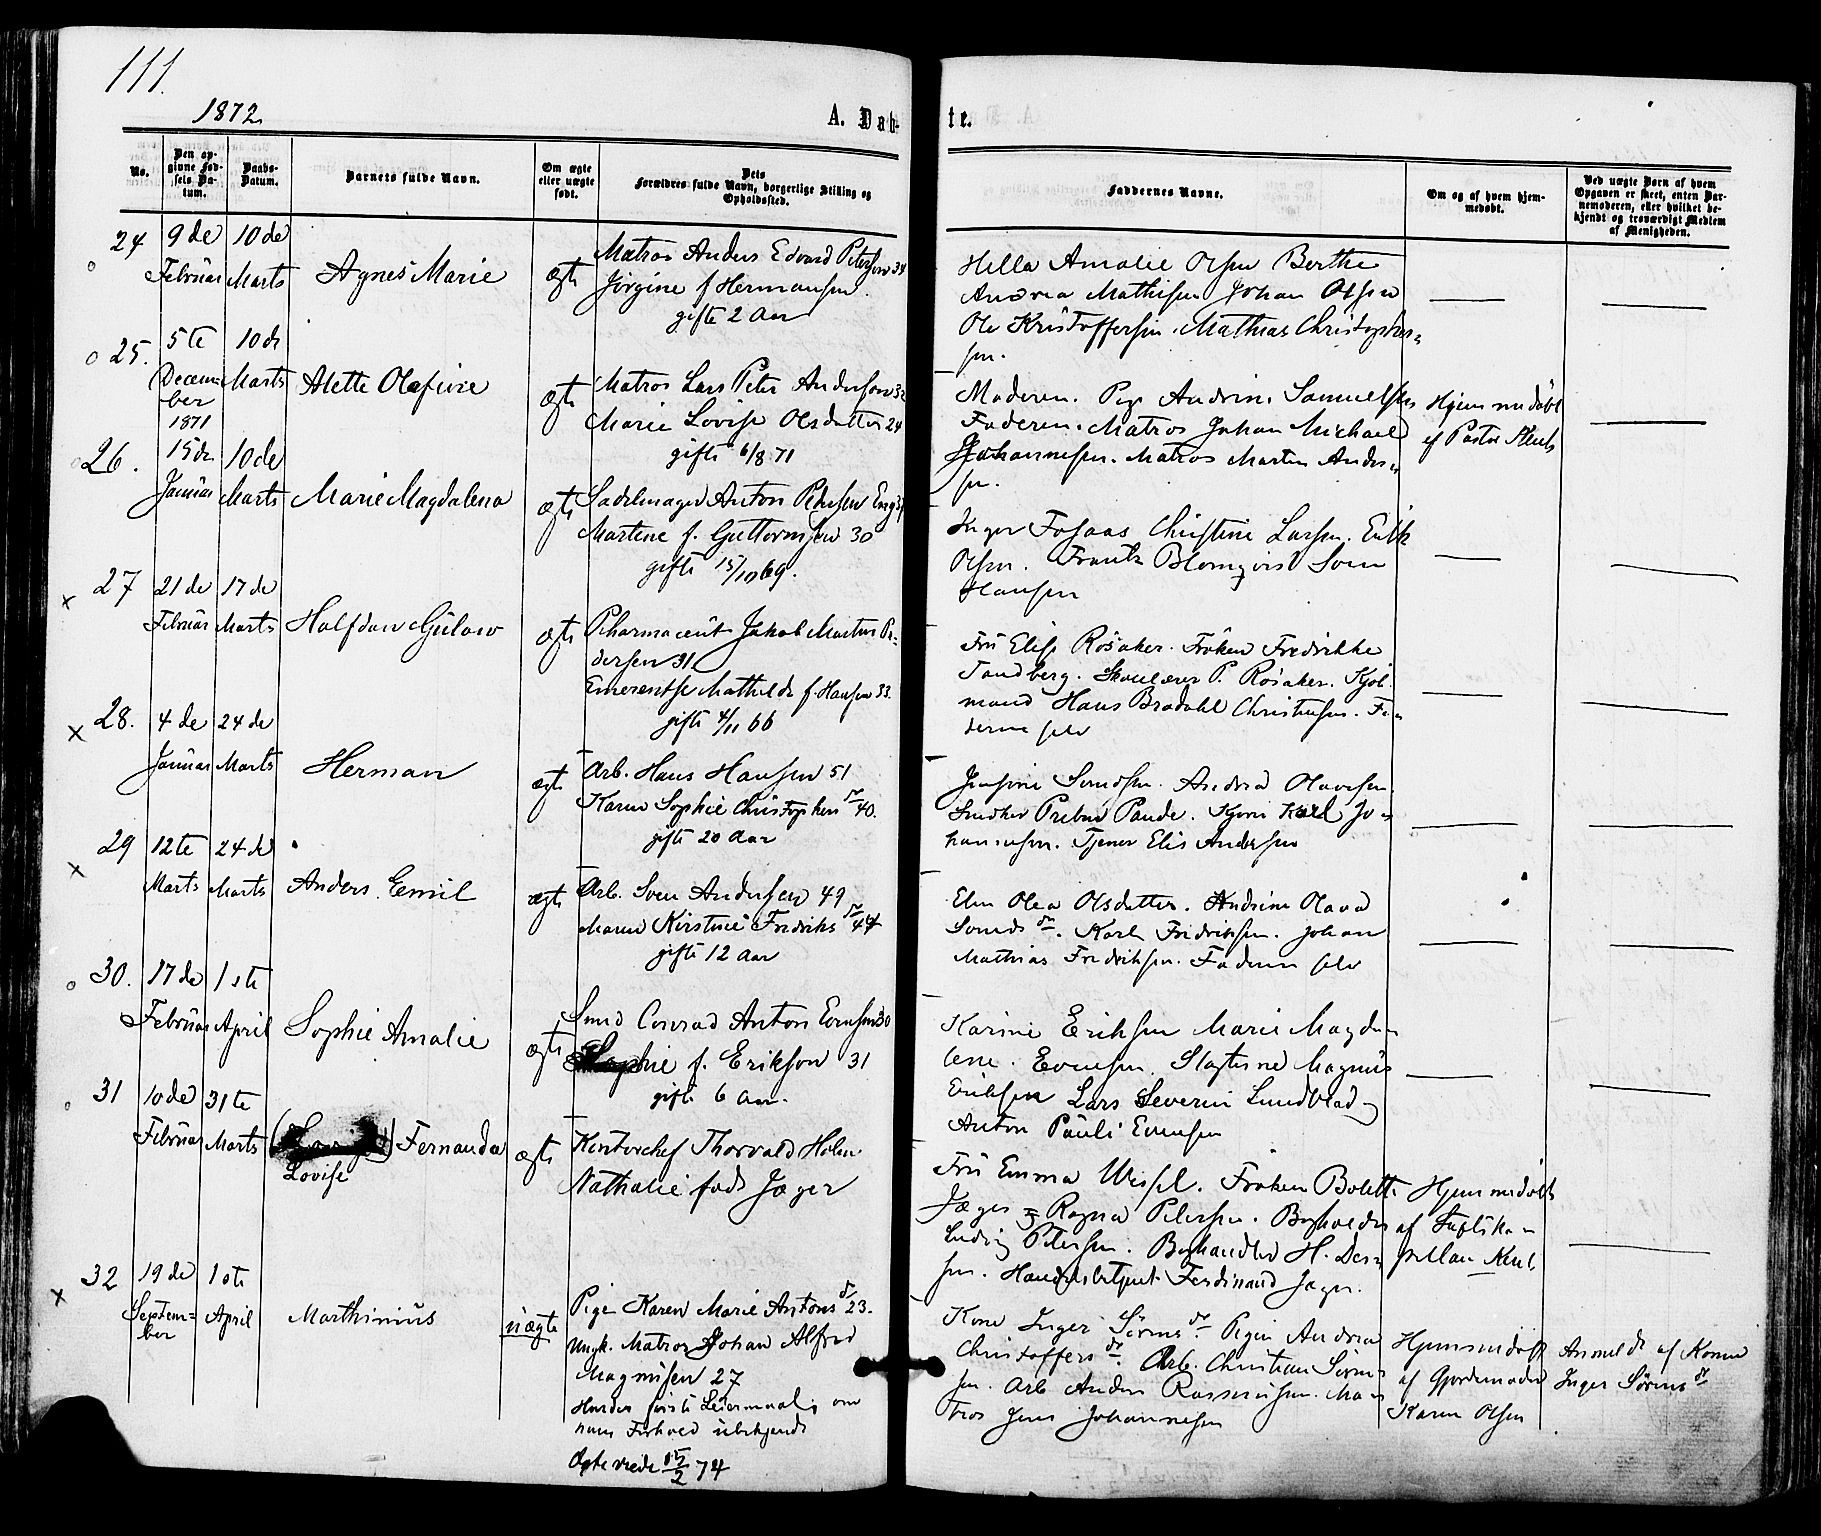 111.
1872.
A. Døb-
te.
No.
Den op-
givne Fød-
sels Da-
tum.
Daabs-
Datum.
Barnets fulde Navn.
Om ægte
eller uægte
født.
Dets
Forældres fulde Navn, borgerlige Stilling og
Opholdssted.
Faddernes Navne.
Om og af hvem hjem-
medøbt.
Ved uægte Børn af hvem
Opgaven er skeet, enten Bar-
nemoderen, eller hvilket be-
kjendt og troværdigt Medlem
af Menigheden.
24
9de
Februar
10de
Marts
Agnes Marie
ægte
Matros Anders Edvard Petersen 34
Jörgine f Hermansen.
gifte 2 Aar
Hella Amalie Olsen Berthe
Andrea Mathisen Johan Olsen
Ole Kristoffersen. Mathias Christophers-
sen.
25.
5te
Decem-
ber
1871
10de
Marts
Alette Olafine
ægte
Matros Lars Peter Andersen 32
Marie Lovise Olsdatter 24
gifte 6/8 71
Moderen. Pige Andrine Samuelsen
Faderen. Matros Johan Michael
Johannesen. Matros Martin Ander-
sen.
Hjemmedöbt
af Pastor
26.
15de
Januar
10de
Marts
Marie Magdalena
ægte
Sadelmager Anton Petersen Eng
Martene f. Guttormsen 30
gifte 15/10 69.
Inger Fosaas Christine Larsen. Erik
Olsen. Frantz Blomqvist Sven
Hansen
27
21de
Februar
17de
Marts
Halfdan Gulow
ægte
Pharmaceut Jakob Martin Pe-
dersen 31
Emerentse Mathilde f. Hansen 33.
gifte 4/11 66
Fru Elise Rösaker. Fröken Fredrikke
Tandberg. Skoelærer P. Rösaker. Kjöb
mand Hans Bradahl Christensen. Fa-
deren selv
28.
4de
Januar
24de
Marts
Herman
ægte
Arb. Hans Hansen 51
Karen Sophie Christophersdr 40.
gifte 20 Aar
Josefine Svendsen. Andrea Olavesen
Snedker Preben Paude. Karl Jo-
hannesen. Tjener Elis Andersen
29
12te
Marts
24de
Marts
Anders Emil
ægte
Arb. Sven Andersen 49
Maren Kirstine Fredriksdr 44
gifte 12 Aar
Elen Olea Olsdatter. Andrine Olava
Svendsdr. Karl Fredriksen. Johan
Mathias Fredriksen. Faderen selv
30.
17de
Februar
1ste
April
Sophie Amalie
ægte
Smed Conrad Anton Evensen 30
Sophie f. Erikson 31
gifte 6 Aar.
Karine Eriksen Marie Magda-
lene. Evensen. Magnus
Eriksen Lars Severin Lundblad
Anton Pauli Evensen
31
10de
Februar
31te
Marts
Fernanda
Lovise
ægte
Kontorchef Thorvald Holm
Nathalie född Jæger
Fru Emma Wessel. Fröken Bolette
Jæger og Ragna Petersen. Bogholder
Ludvig Petersen. Boghandler H. Der-
sen. Handelsbetjent Ferdinand Jæger.
Hjemmedöbt
af Slotska-
pellan
32
19de
Septem-
ber
1ste
April
Marthinius
uægte
Pige Karen Marie Antonsdr 23.
Ungk. Matros Johan Alfred
Magnusen 27
Hendes første Leiermaal, om
hans Forhold ubekjendt
Ægteviede 15/2 74
Kone Inger Sörensdr. Pigen Andrea
Christoffersdr. Arb. Christian Sören-
sen. Arb Anders Rasmussen. Ma-
tros Jens Johannesen
Hjemmedöbt
af Gjordemoder
Karen Olsen
Anmeldt af Konen
Inger Sörensdr